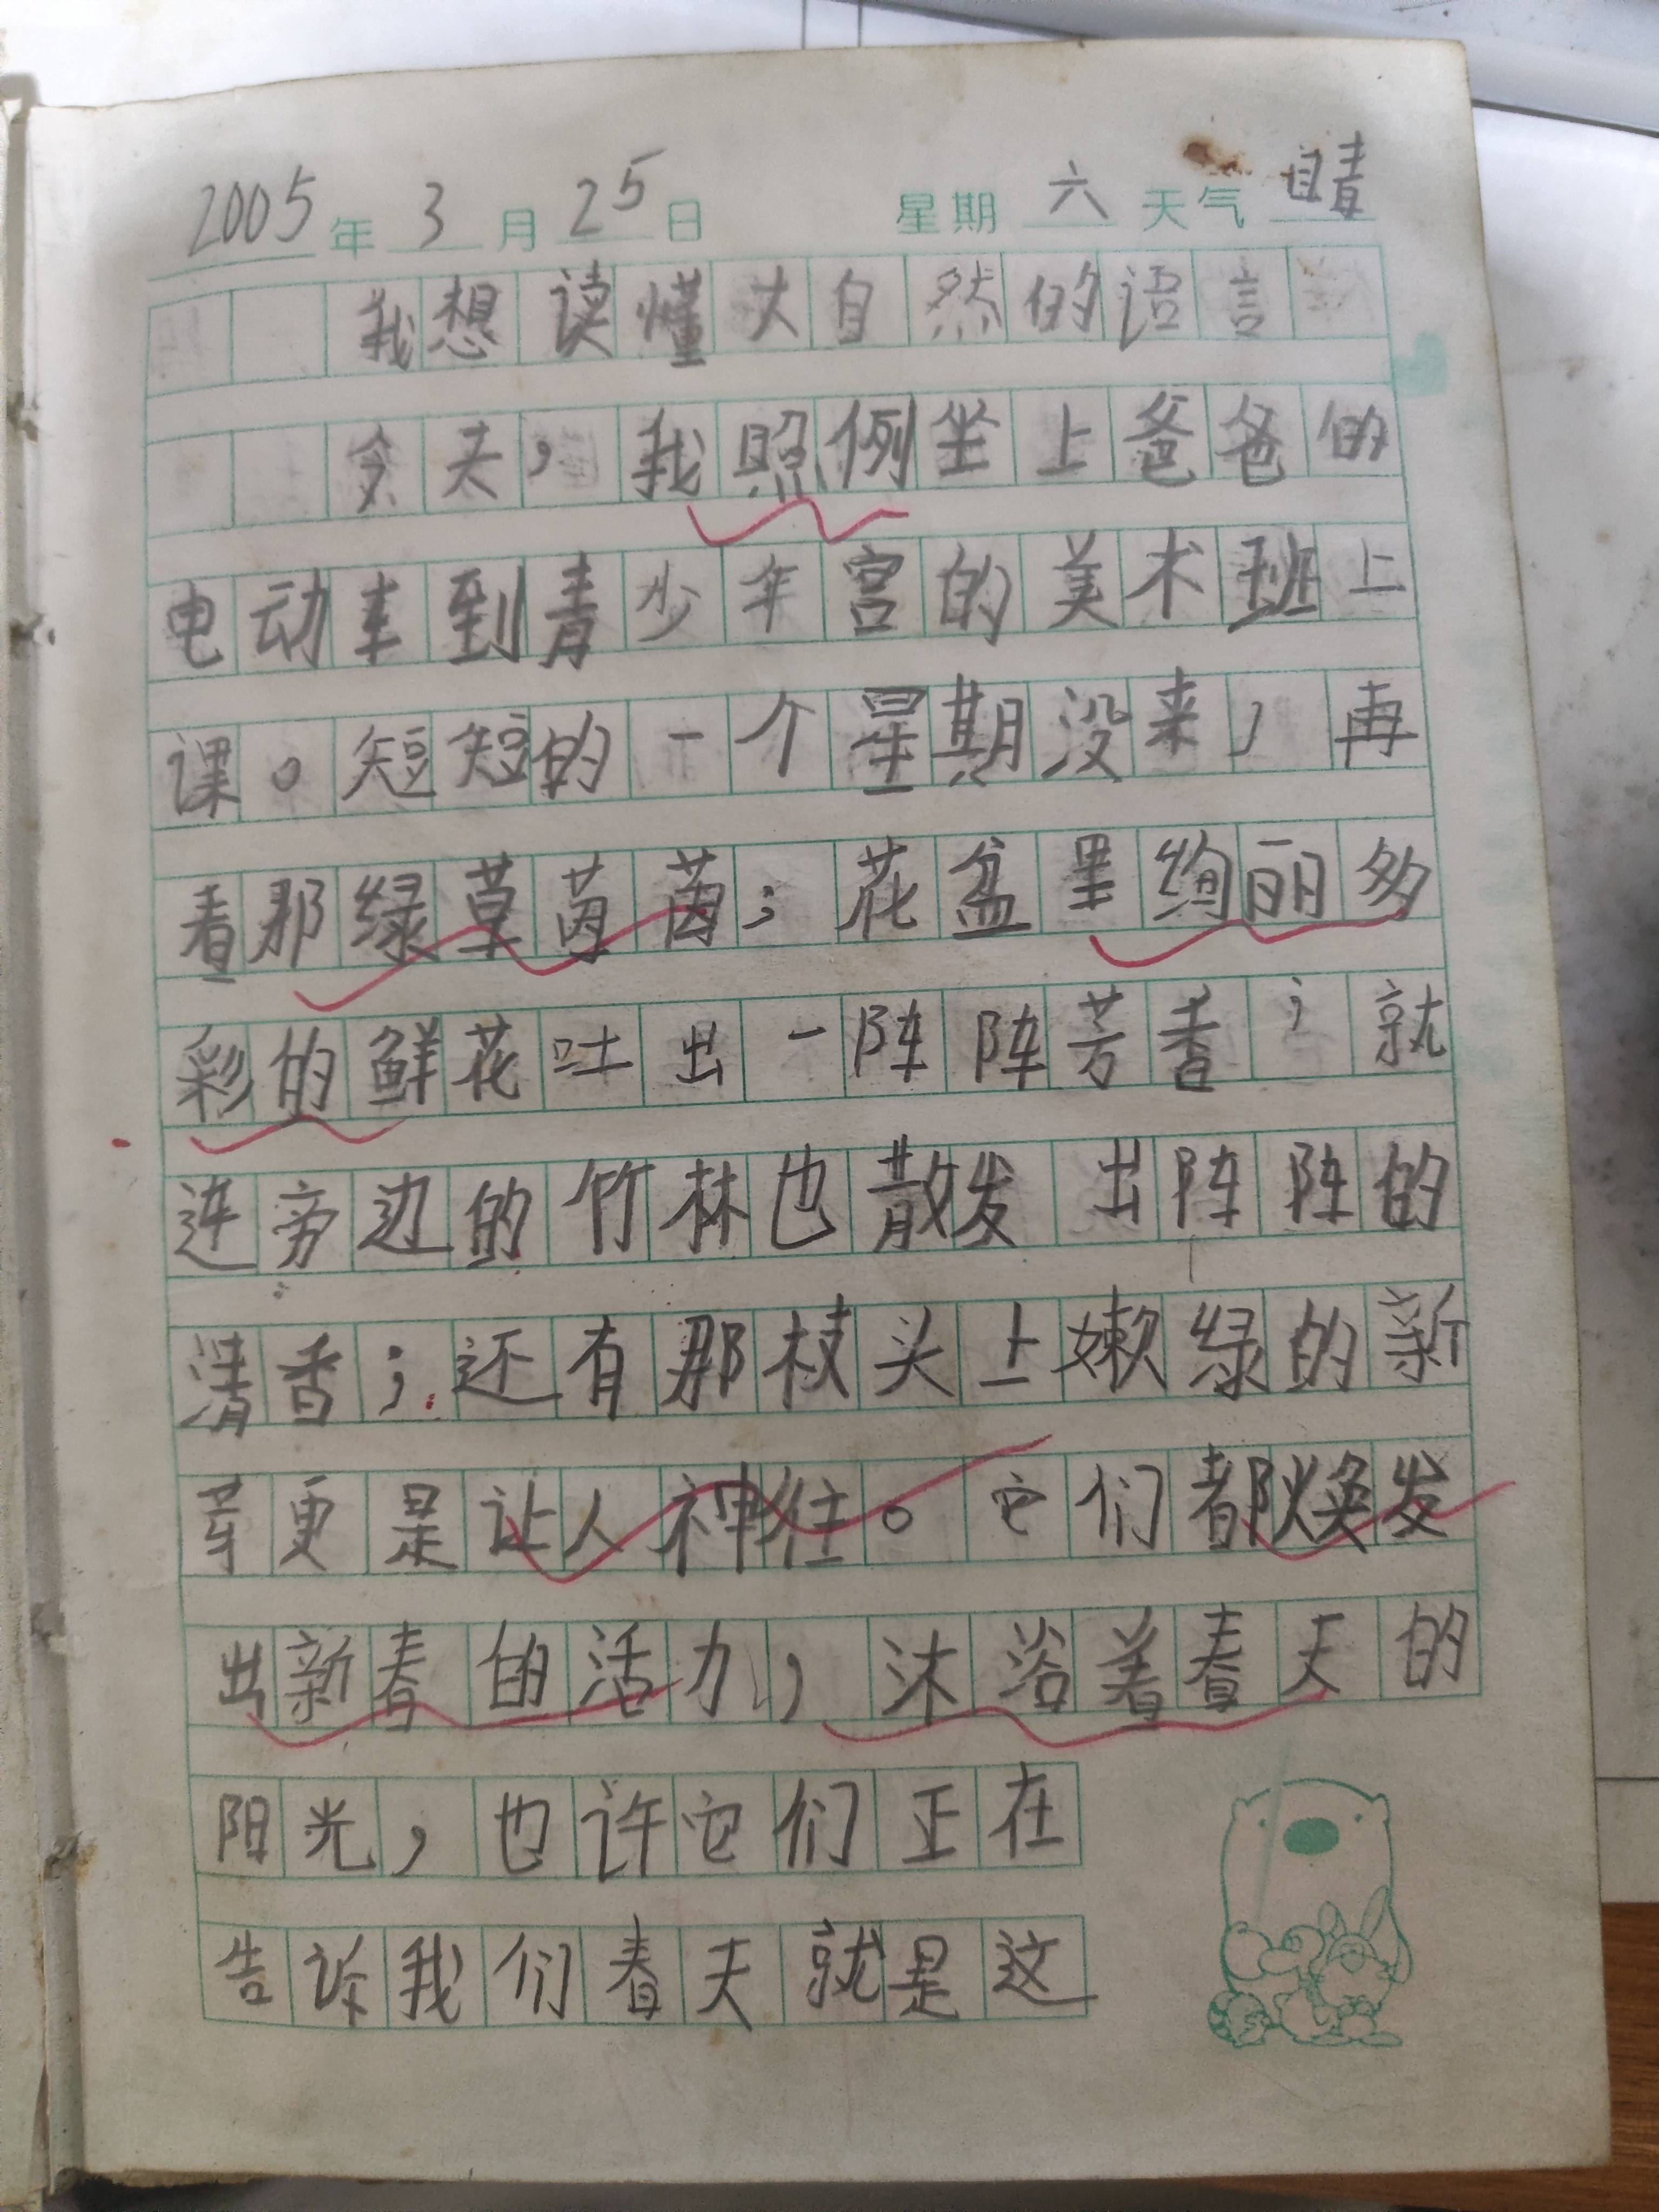 2005年3月25日 星期六 天气晴
我想读懂大自然的语言
今天，我照例坐上爸爸的
电动车到青少年宫的美术班上
课。短短的一个星期没来，再
看那绿草茵茵；花盆里绚丽多
彩的鲜花吐出一阵阵芳香；就
连旁边的竹林也散发出阵阵的
清香；还有那枝头上嫩绿的新
芽更是让人神往。它们都焕发
出新春的活力，沐浴着春天的
阳光，也许它们正在
告诉我们春天就是这